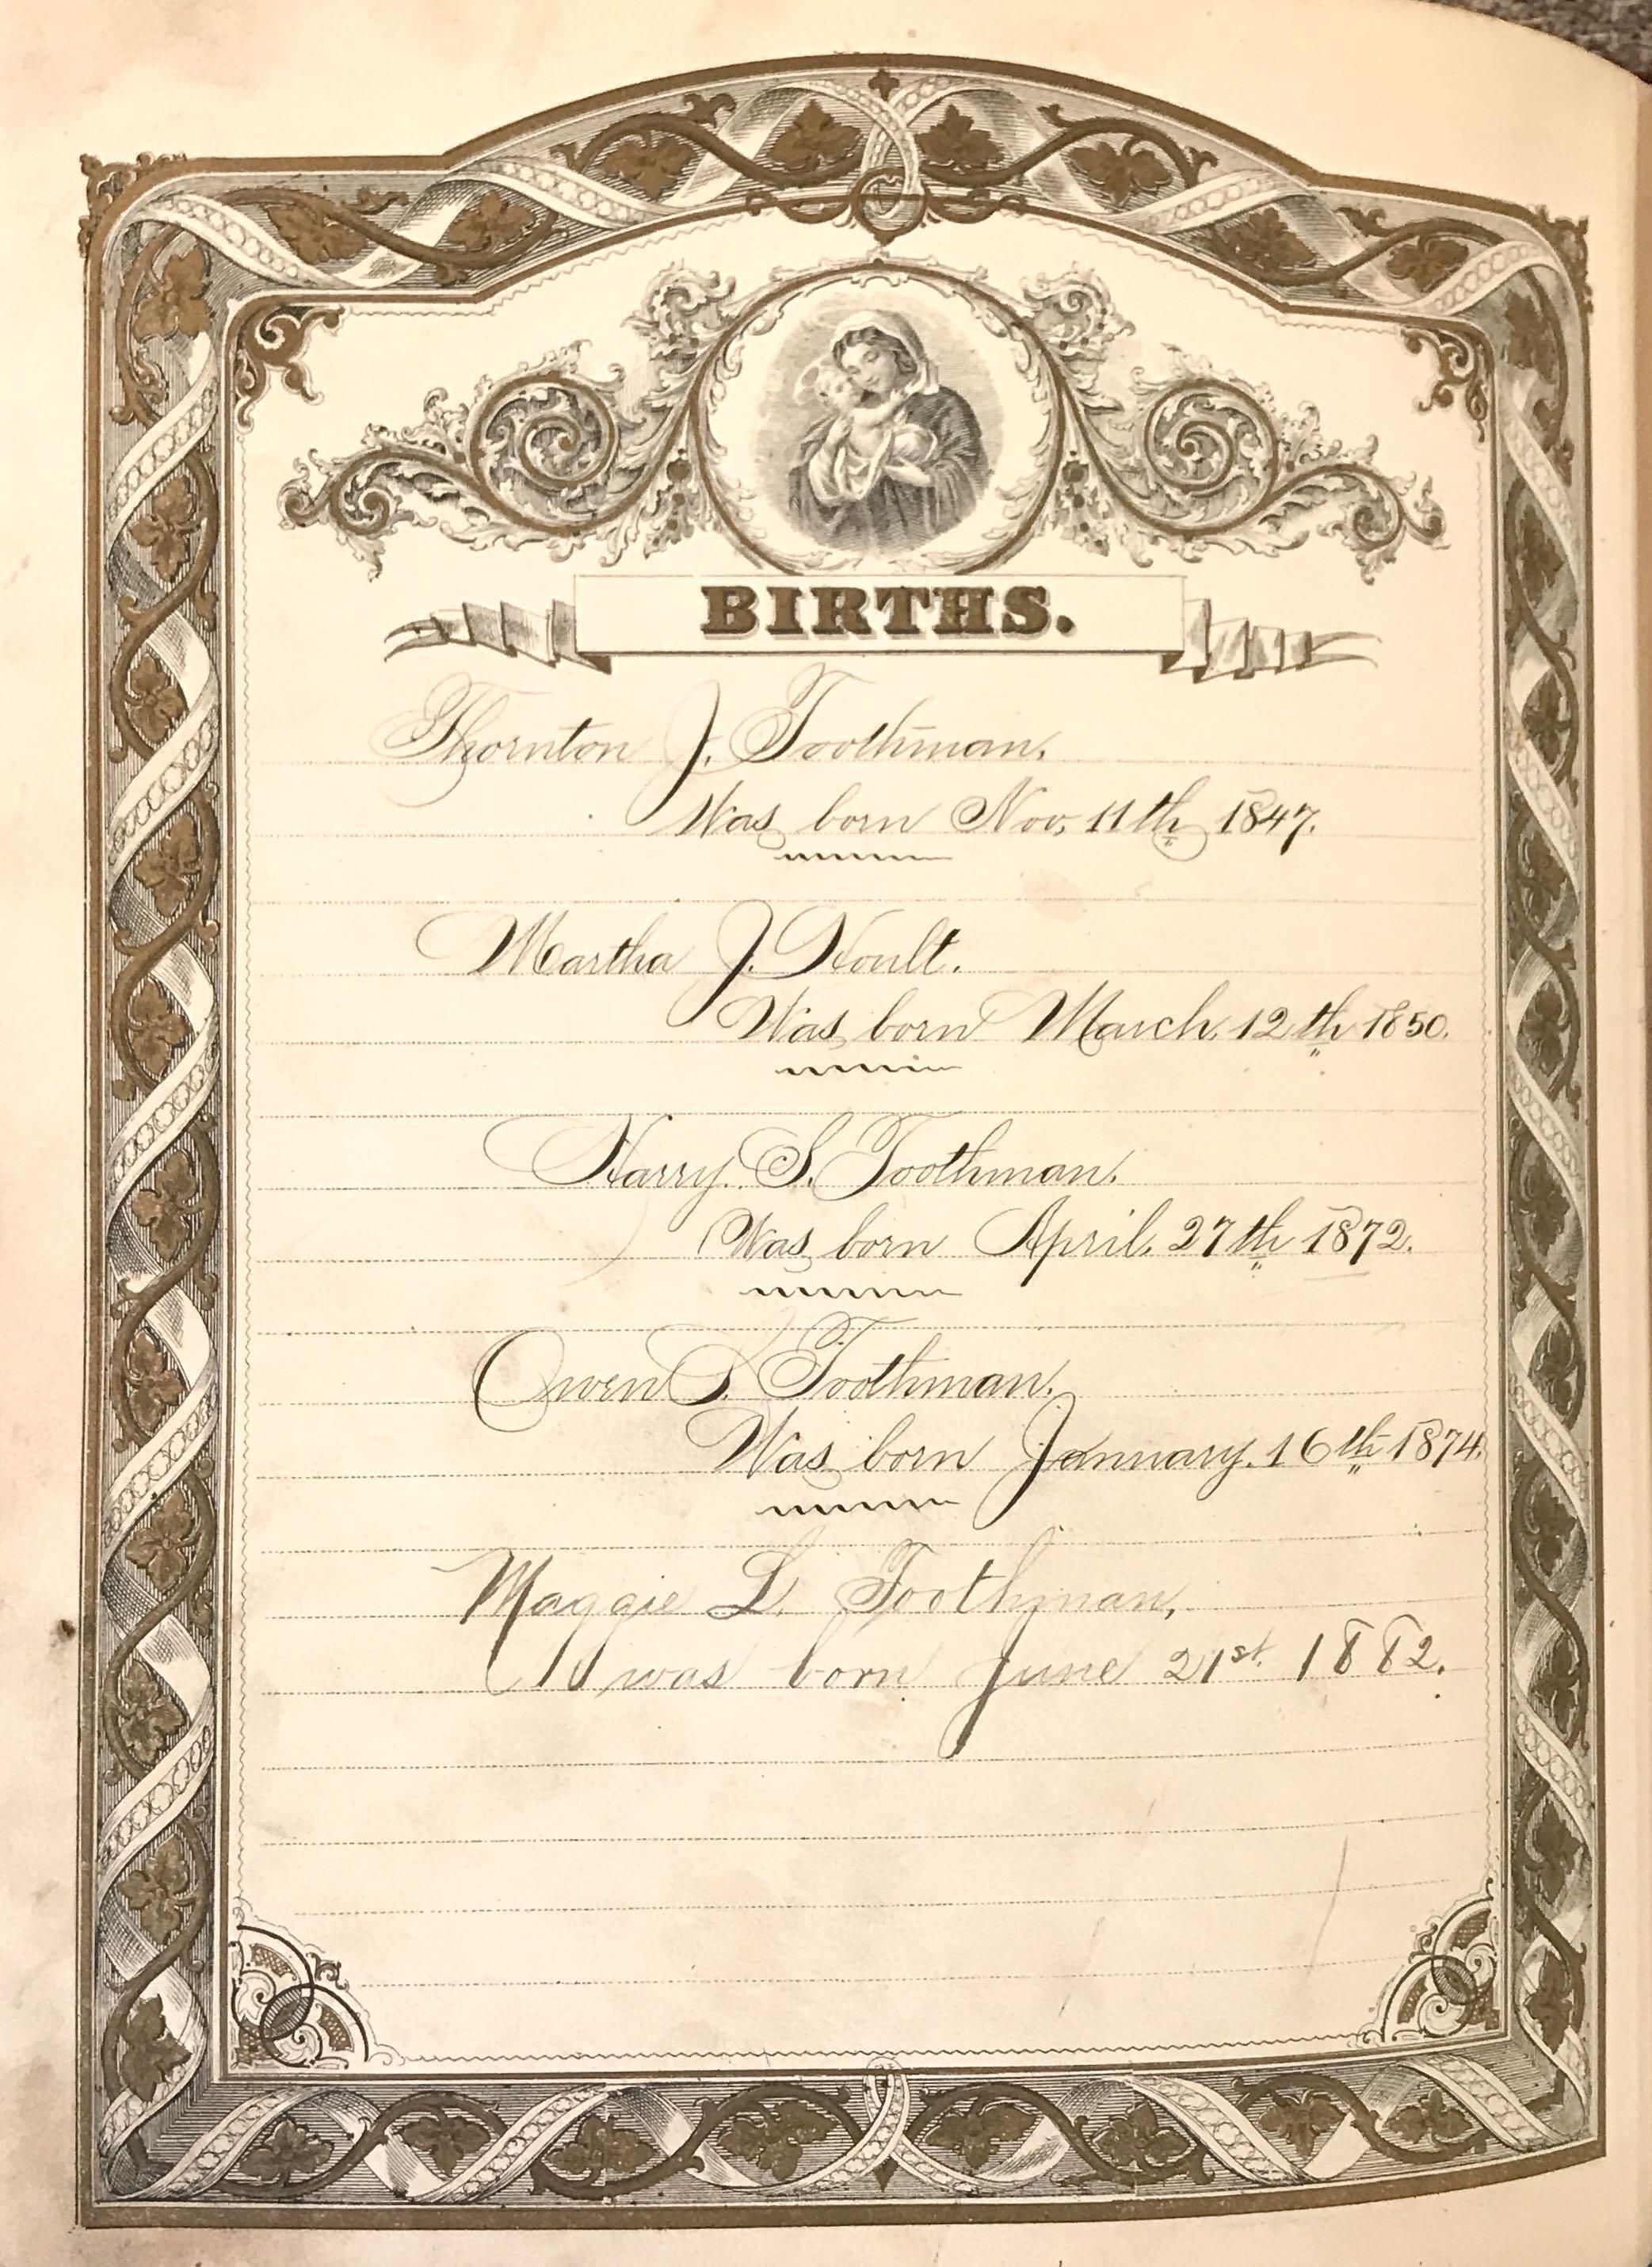 BIRTHS.
Thornton J. Toothman.
Was born Nov. 11th 1847.
Martha J. Hoult.
Was born March. 12th 1850.
Harry. S. Toothman.
Was born April. 27th 1872.
Owen Toothman.
Was born January. 16th 1874.
Maggie L. Toothman,
was born June 21st. 1882.